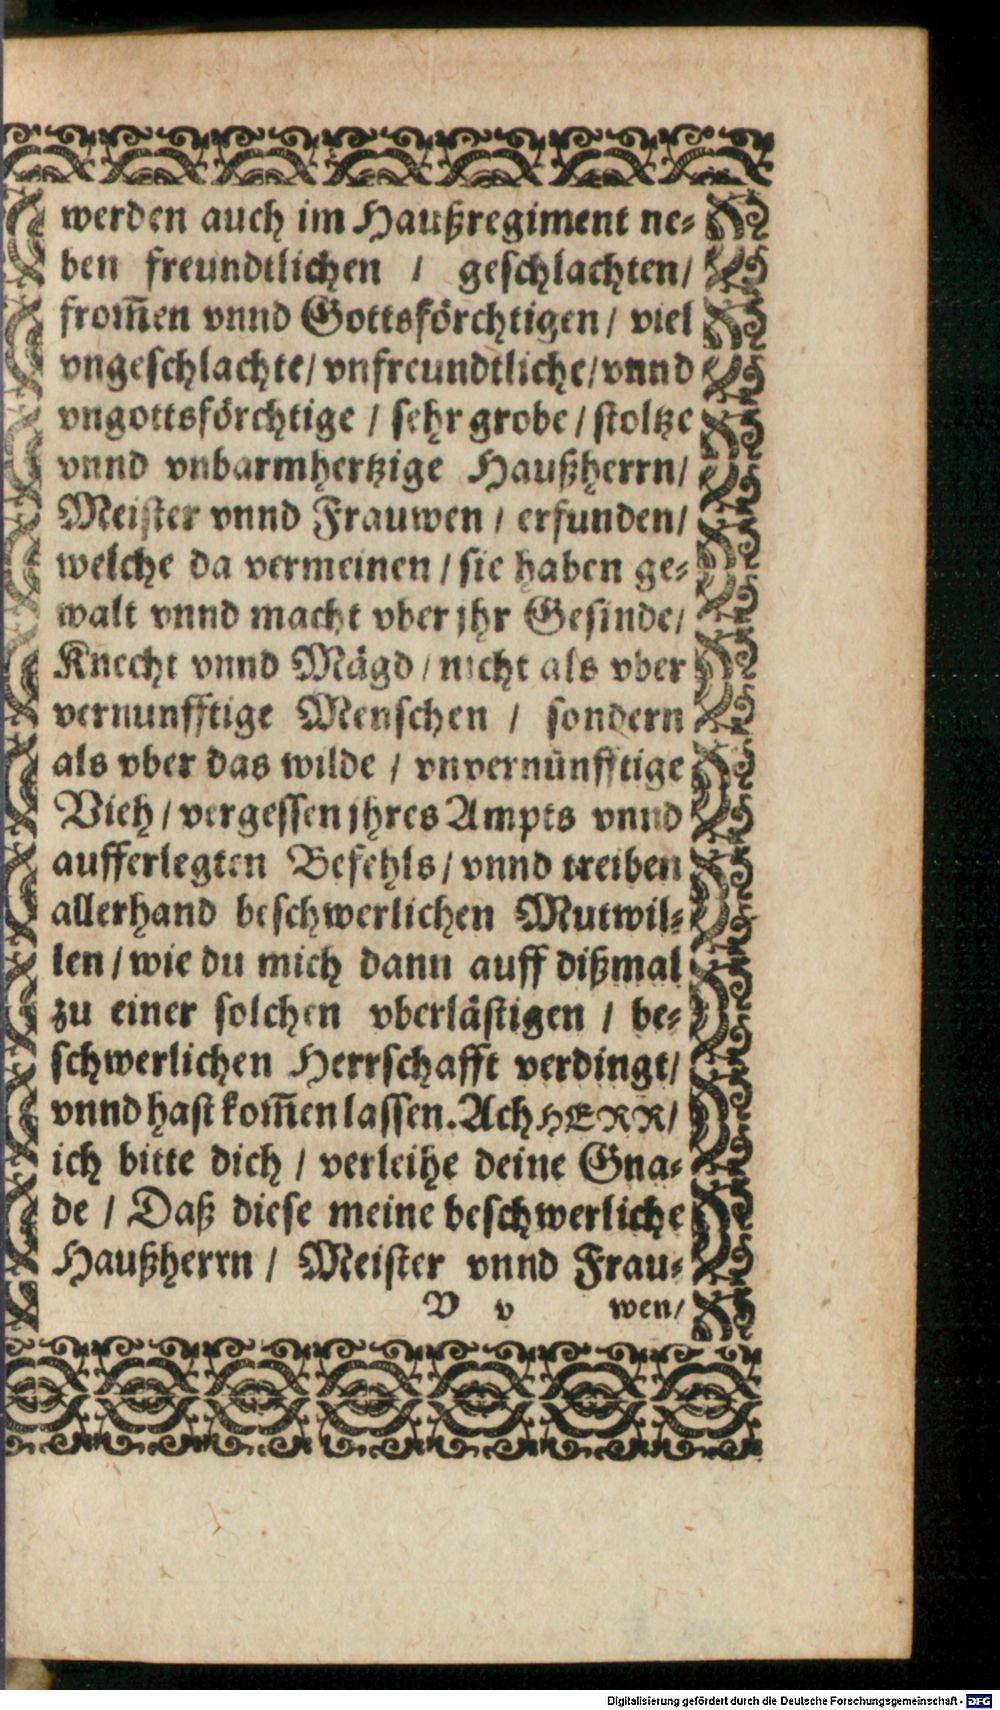 werden auch im Haußregiment ne⸗
ben freundtlichen / geschlachten/
from̃en vnnd Gottsförchtigen / viel
vngeschlachte/ vnfreundtliche/ vnnd
vngottsförchtige / sehr grobe / stoltze
vnnd vnbarmhertzige Haußherrn/
Meister vnnd Frauwen / erfunden/
welche da vermeinen / sie haben ge⸗
walt vnnd macht vber jhr Gesinde/
Knecht vnnd Mägd / nicht als vber
vernunfftige Menschen / sondern
als vber das wilde / vnvernünfftige
Vieh / vergessen jhres Ampts vnnd
aufferlegten Befehls / vnnd treiben
allerhand beschwerlichen Mutwil⸗
len / wie du mich dann auff dißmal
zu einer solchen vberlästigen / be⸗
schwerlichen Herrschafft verdingt/
vnnd hast kom̃en lassen. Ach HERR/
ich bitte dich / verleihe deine Gna⸗
de / Daß diese meine beschwerliche
Haußherrn / Meister vnnd Frau⸗
V v wen/
Digitalisierung gefördert durch die Deutsche Forschungsgemeinschaft - DFG